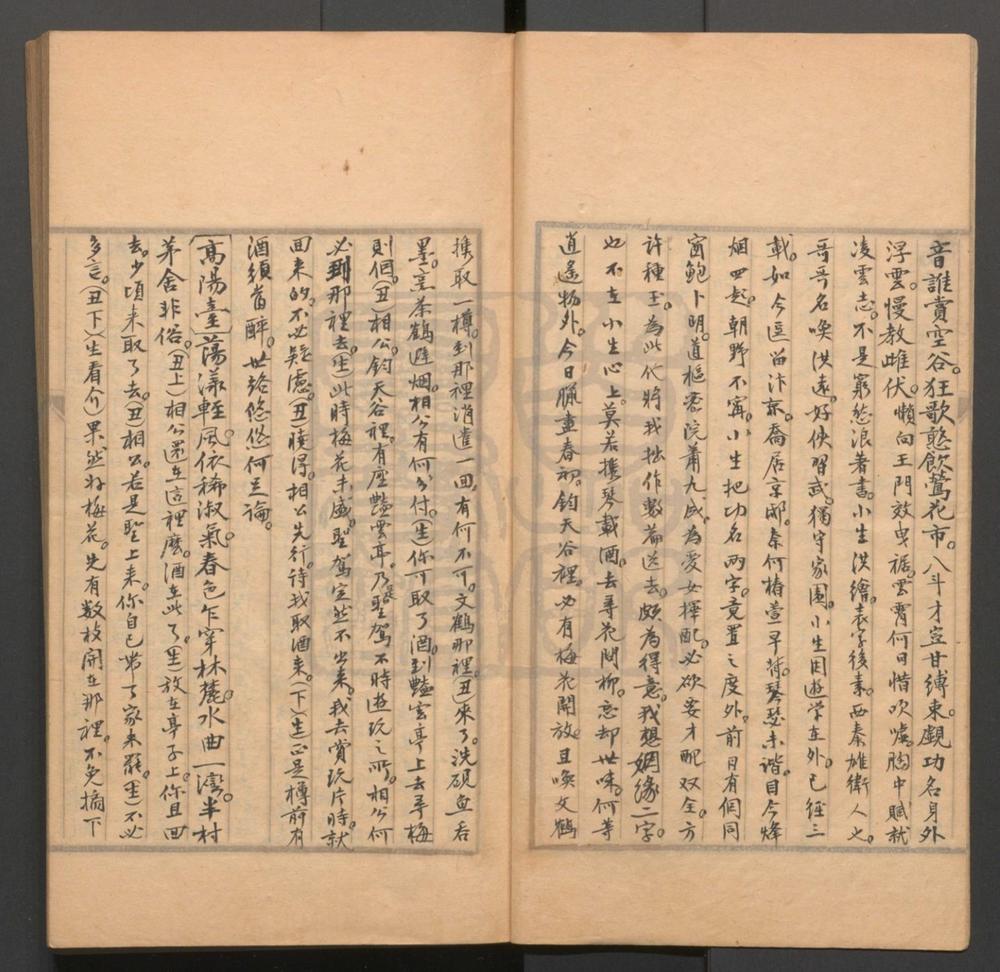 音誰賞空谷。狂歌憨飲鶯花市。八斗才豈甘縛束。覷功名身外
浮雲。慢教雌伏。懶向王門效曳裾。雲霄何日惜吹噓。胸中賦就
凌雲志。不是窮愁浪著書。小生洪繪。表字後素。西秦雄衛人也。
哥哥名喚洪遠。好俠習武。獨守家園。小生因遊学在外。已經三
載。如今逗留汴京。喬居京邸。奈何椿萱早背。琴瑟未諧。目今烽
烟四起。朝野不寧。小生把功名兩字。竟置之度外。前日有個同
窗鮑卜明。道樞密院蕭九成。為愛女擇配。必欲要才配双全。方
許種玉。為此代將我拙作數篇送去。頗為得意。我想姻缘二字。
也不在小生心上。莫若攜琴載酒。去尋花問柳。忘却世味。何等
逍遙物外。今日臘盡春初。鈞天谷裡。必有梅花開放。且喚文鶴
攜取一樽。到那裡消遣一回。有何不可。文鶴那裡。(丑)來了。洗硯魚吞
墨。烹茶鶴避烟。相公有何分付。(生)你可取了酒。到豔雲亭上去尋梅
則個。(丑)相公。鈞天谷裡。有座豔雲亭。乃是聖駕不時遊玩之所。相公何
必到那裡去。(生)此時梅花未盛。聖駕定然不出来。我去賞玩片時。就
回来的。不必疑慮。(丑)曉得。相公先行。待我取酒来。(下)(生)正是樽前有
酒須當醉。世路悠悠何足論。
[高陽臺]蕩漾輕風。依稀淑氣。春色乍穿林麓。水曲一灣。半村
茅舍非俗。(丑上)相公還在這裡麽。酒在此了。(生)放在亭子上。你且回
去。少頃来取了去。(丑)相公。若是聖上来。你自已帶了家来罷。(生)不必
多言。(丑下)(生看介)果然好梅花。先有数枝開在那裡。不免摘下